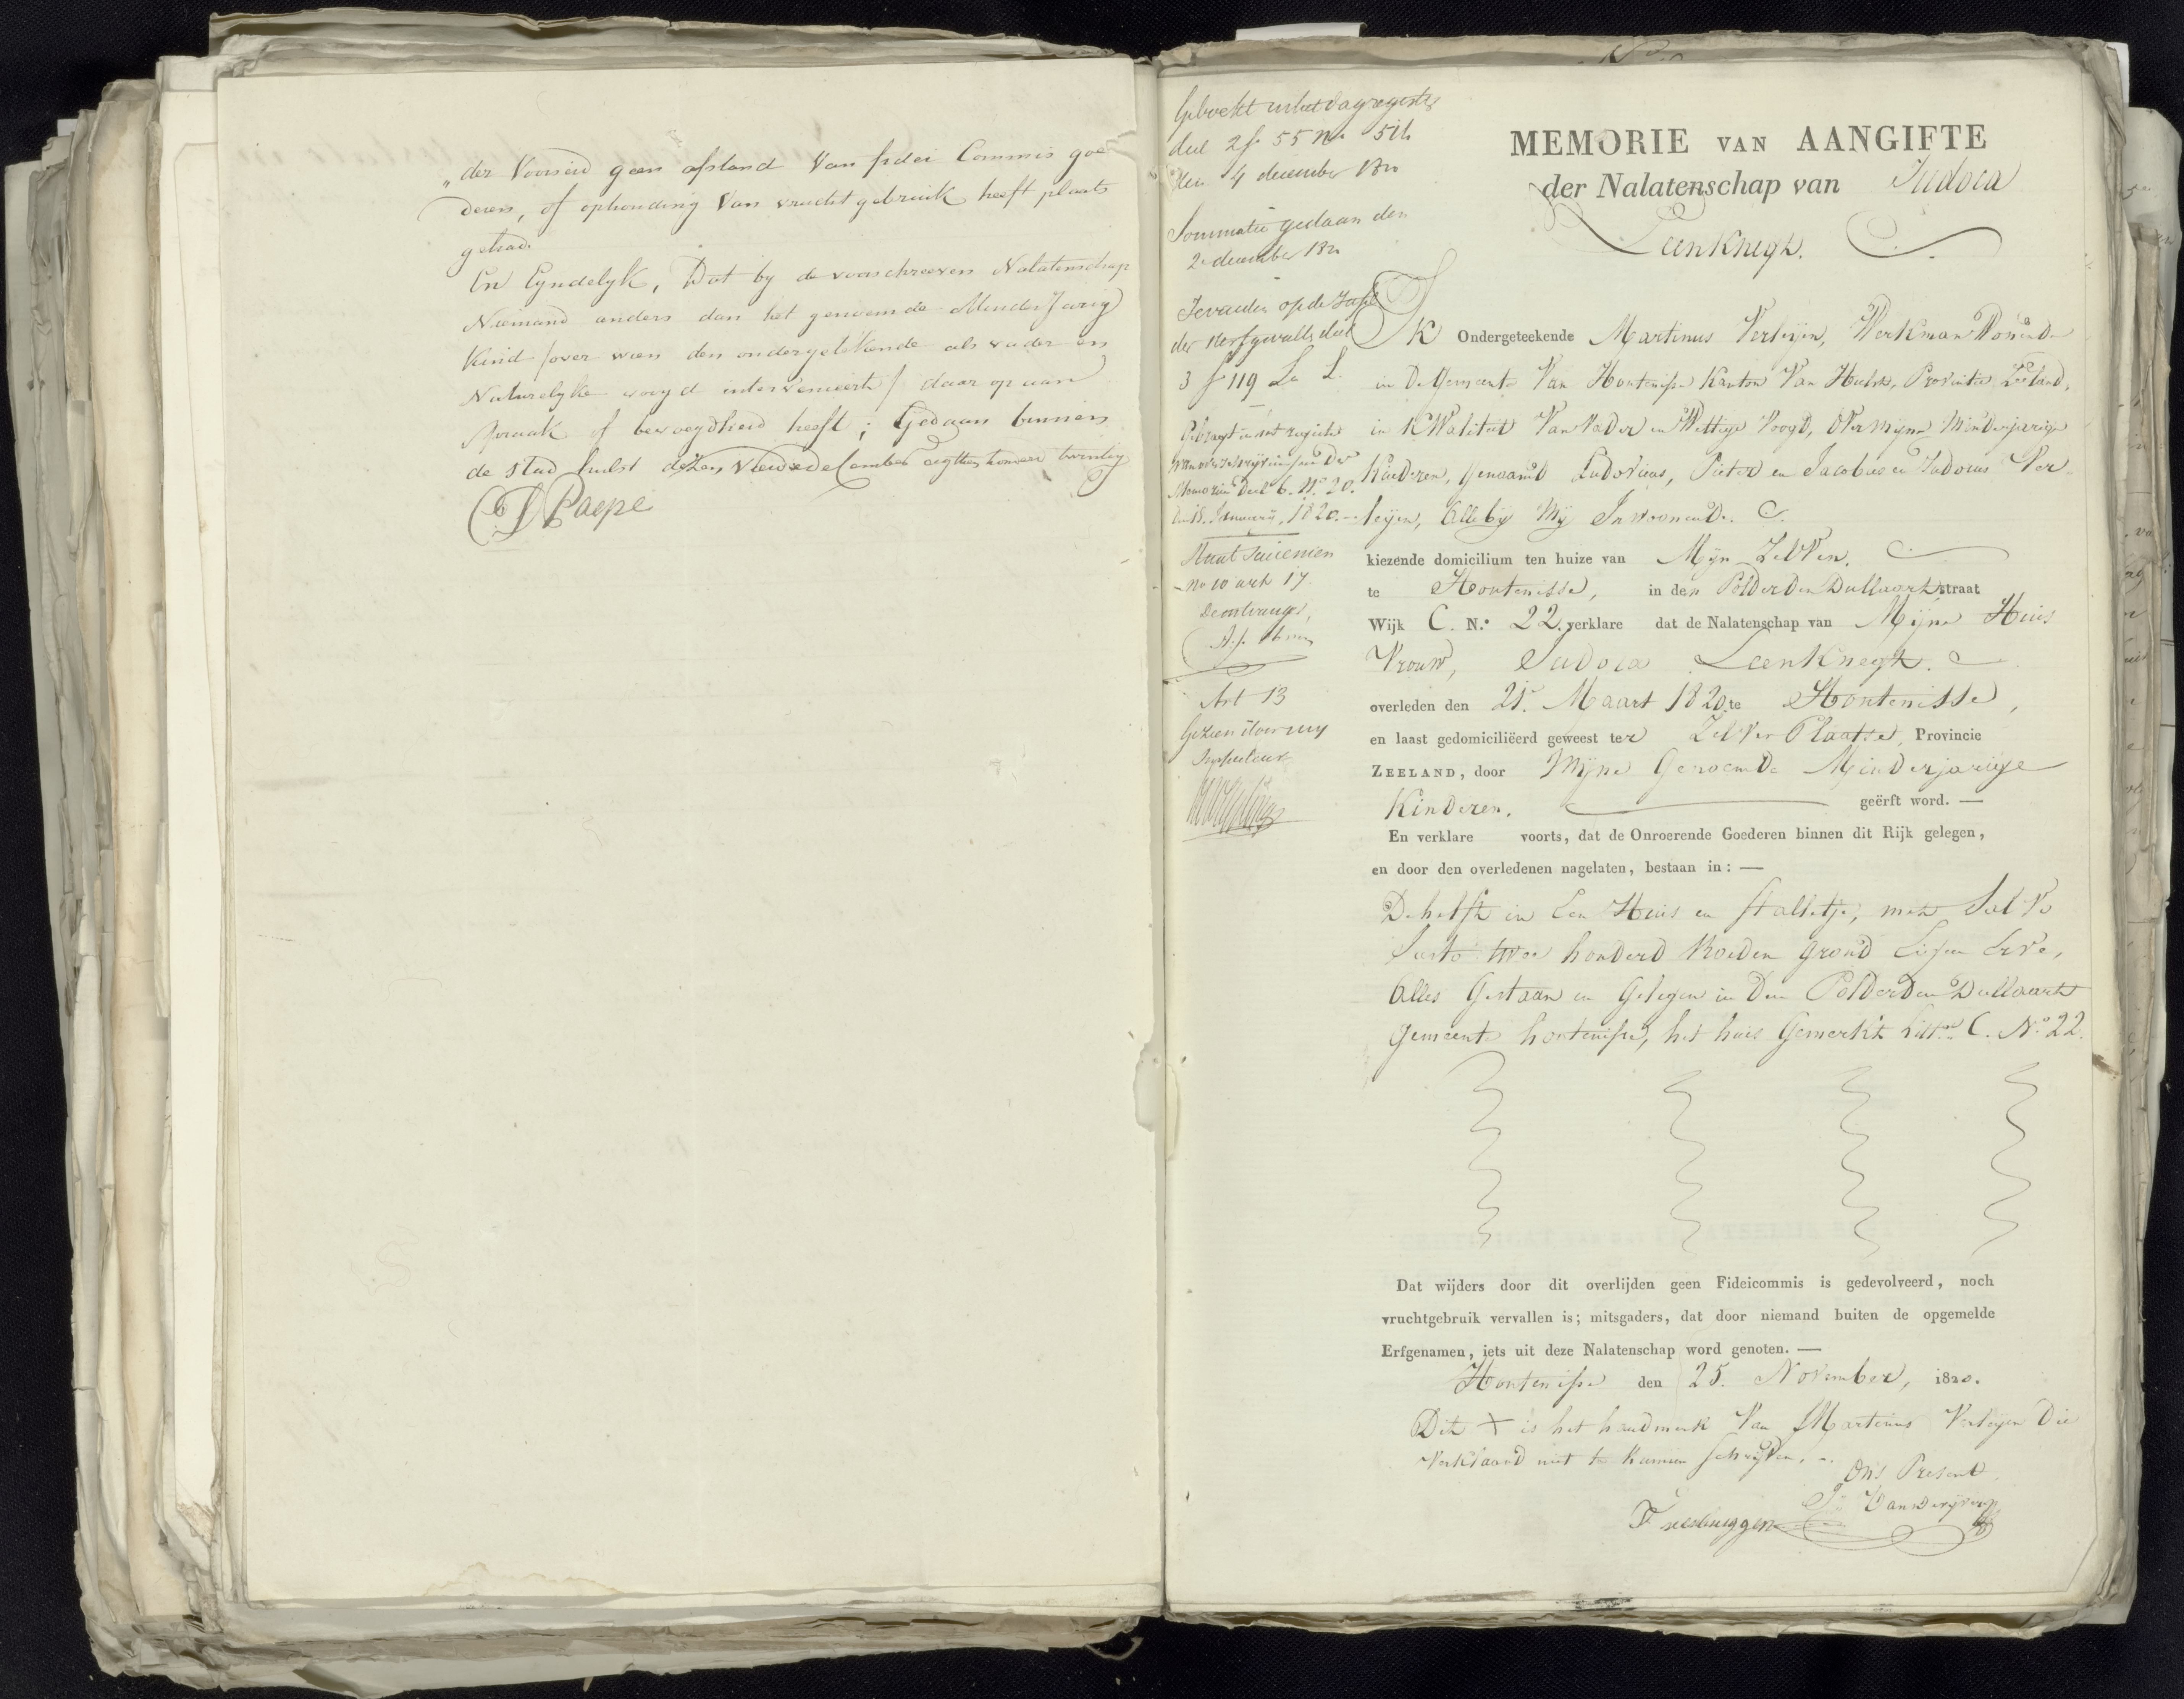 „der Voorseid geen afstand Van fidei Commis goe
deren, of ophouding Van vruchtgebruik heeft plaats
gehad.
En Eyndelyk, Dat by de voorschreeven Nalatenschap
Niemand anders dan het genoemde Minderjarig
Kind /over wien den ondergetekende als vader en
Natuurelyke voogd intervenieert/ daar op aan
spraak of bevoegdheid heeft; Gedaan binnen
de stad hulst dezen vierde december agttien honderd twintig
D Paepe
Geboekt in het dagregister
deel 2 f. 55 No
den 4 december 1820
Sommatie gedaan den
2 december 1820
op de tafel
der sterfgevallen deel
3 f 119 La L.
Gebragt in het register
der
Memorien Deel 6. N.o 20.
den 15. Januarij, 1820.
Staat
No 10 art 17.
De ontvanger,
Art 13
Gezien door my
Inspecteur
MEMORIE VAN AANGIFTE
der Nalatenschap van Judoca
Leenknegt.
Ik Ondergeteekende Martinus Verleijen, Werkman Wonende
in De Gemeente Van Hontenisse Kanton Van Hulst, Provintie Zeeland,
in KWaliteit Van Vader en Wettige Voogd, Over Myne Minderjarige
Kinderen, Genaamd Ludovicus, Pieter en Jacobus en Judocus Ver
leijen, Alle bij Mij Inwoonende.
kiezende domicilium ten huize van Mijn Zelven.
te Hontenisse, in den Polder Den Dullaart straat
Wijk C. N.o 22. verklare dat de Nalatenschap van Mijne Huis
Vrouw, Judoca Leenknegt.
overleden den 21. Maart 1820. te Hontenisse,
en laast gedomiciliëerd geweest ter Zelver Plaatse, Provincie
ZEELAND, door Mijne Genoemde Minderjarige
Kinderen. geërft word. —
En verklare voorts, dat de Onroerende Goederen binnen dit Rijk gelegen,
en door den overledenen nagelaten, bestaan in: —
De helft in Een Huis en Stalletje, met Salvo
Justo twee honderd Roeden grond Eigen Erve,
Alles Gestaan en Gelegen in Den Polder Den Dullaart
Gemeente hontenisse, het huis Gemerkt Litt.a C. N.o 22.
Dat wijders door dit overlijden geen Fideicommis is gedevolveerd, noch
vruchtgebruik vervallen is; mitsgaders, dat door niemand buiten de opgemelde
Erfgenamen, iets uit deze Nalatenschap word genoten. —
Hontenisse den 25. November, 1820.
Dit + is het handmerk Van Martinus Verleijen Die
Verklaard niet te Kunnen Schrijven.
Ons Present